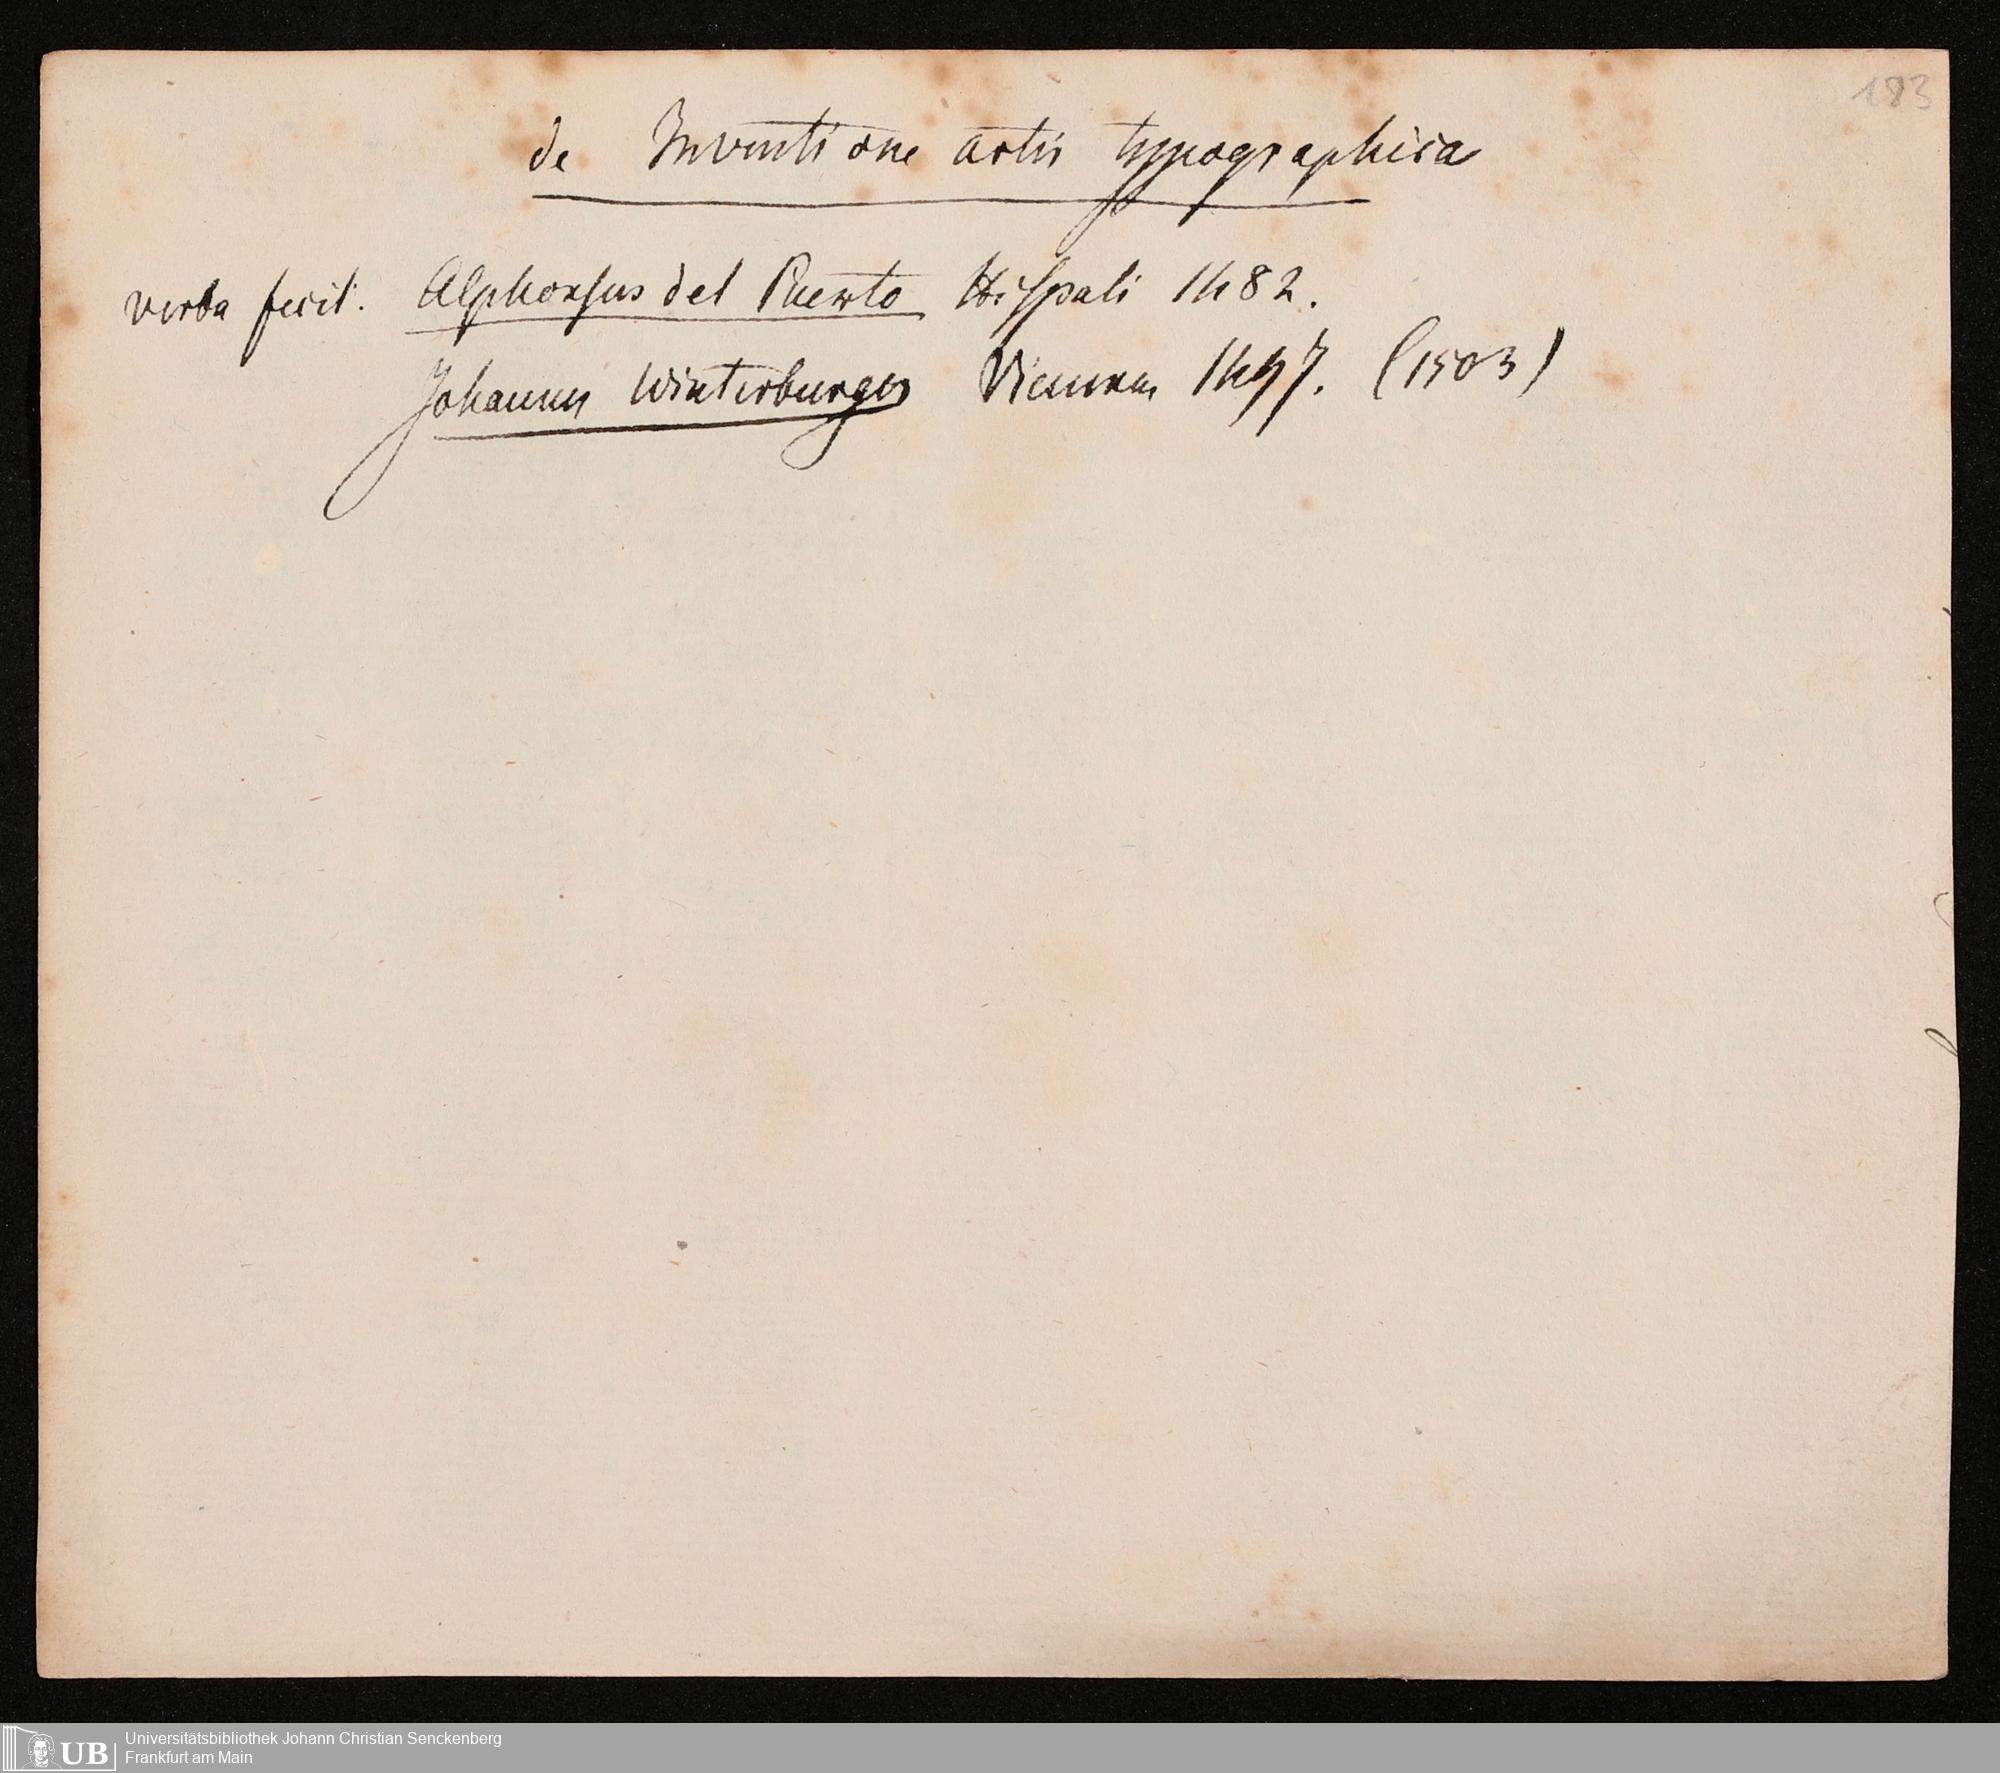 183
de Inventione artis typographica
verba fecit. Alphonsus del Puerto Hispali 1482.
Johannes Winterburger Viennae 1497. (1503)
UB Universitätsbibliothek Johann Christian Senckenberg
Frankfurt am Main